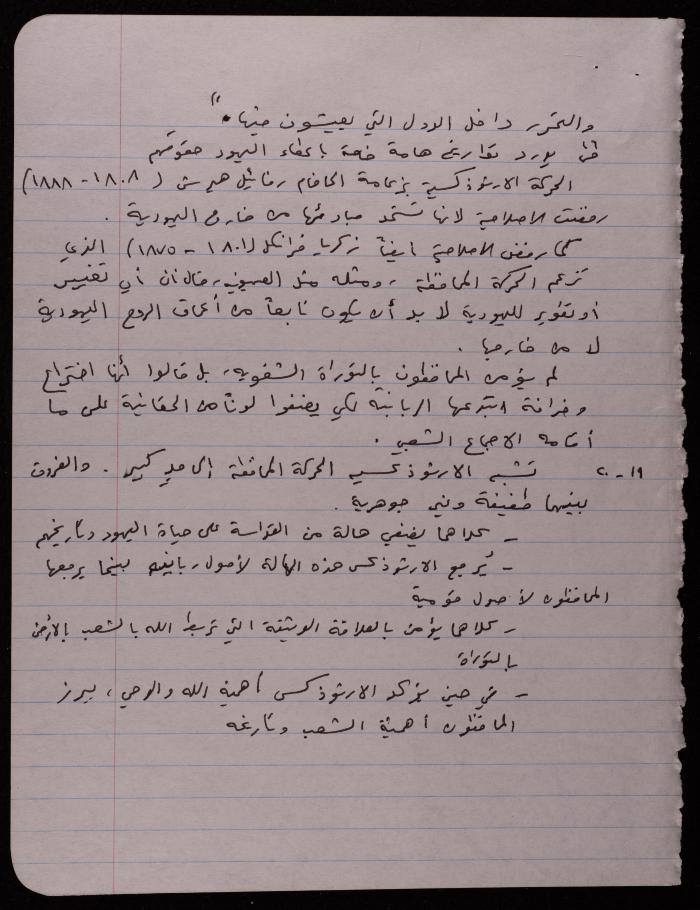 والتحرر داخل الدول التي يعيشون فيها."
ثم يورد تواريخ هامة خاصة باعطاء اليهود حقوقهم
الحركة الارثوذكسية بزعامة الحاخام رفائيل هيرش (١٨٠٨ - ١٨٨٨)
رفضت الاصلاحية لانها تستمد مبادئها من خارج اليهودية .
كما رفض الاصلاحية أيضاً زكريا فرانكل (١٨٠١ - ١٨٧٥) الذي
تزعم الحركة المحافظة ، ومثله مثل الصهيونية، قال ان أي تغيير
أو تطوير لليهودية لا بد أن يكون نابعاً من أعماق الروح اليهودية
لا من خارجها .
لم يؤمن المحافظون بالتوراة الشفوية، بل قالوا أنها اختراع
وخرافة ابتدعها الربانية لكي يضفوا لوناً من الحقانية على ما
أقامه الاجماع الشعبي .
١٩ - ٢٠ تشبه الارثوذكسيه الحركة المحافظة إلى مدى كبير . والفروق
بينهما طفيفة وغير جوهرية .
- كلاهما يضفي هالة من القداسة على حياة اليهود وتاريخهم
- يُرجع الارثوذكس هذه الهالة لأصول ربانيه بينما يرجعها
المحافظون لأصول قومية
- كلاهما يؤمن بالعلاقة الوثيقة التي تربط الله بالشعب بالأرض
بالتوراة
- في حين يؤكد الارثوذكس أهمية الله والوحي ، يبرز
المحافظون أهمية الشعب وتاريخه